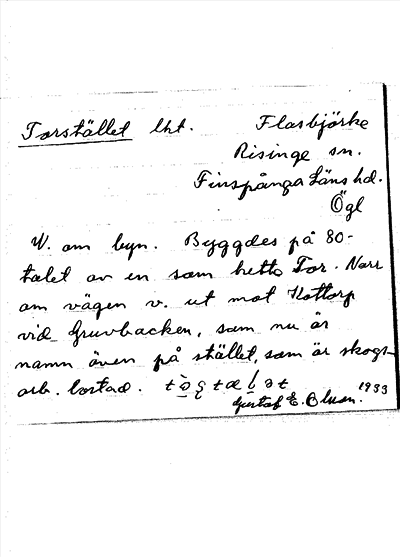 Torstället lht. Flasbjörke
Risinge sn.
Finspånga Läns hd.
Ögl
V. om byn. Byggdes på 80-
talet av en som hette Tor. Norr
om vägen v. ut mot Kottorp
vid Gruvbacken, som nu är
namn även på stället, som är skogs-
arb. bostad.
Gustaf E. Olson. 1933